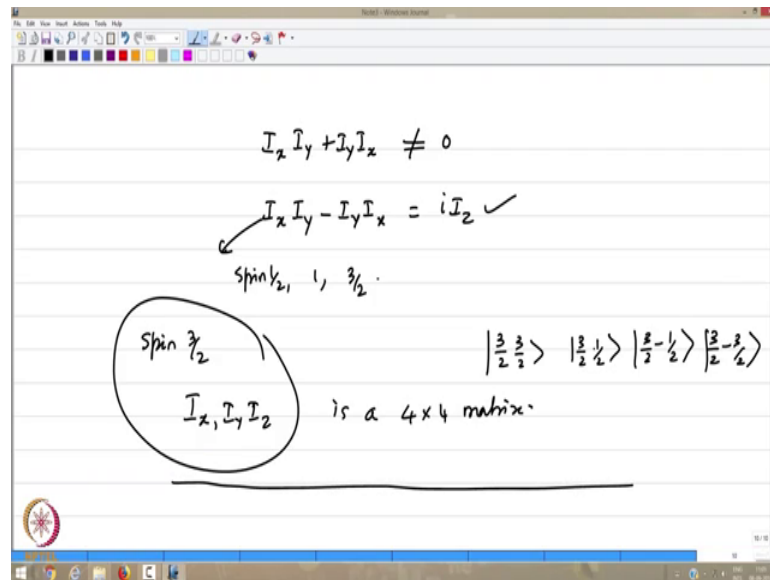 Note1 - Windows Journal
File Edit View Insert Actions Tools Help
I_x I_y + I_y I_x ≠ 0
I_x I_y - I_y I_x = i I_z ✓
spin 1/2, 1, 3/2 .
spin 3/2
|3/2 3/2⟩ |3/2 1/2⟩ |3/2 -1/2⟩ |3/2 -3/2⟩
I_x, I_y I_z is a 4×4 matrix.
10/10
NPTEL